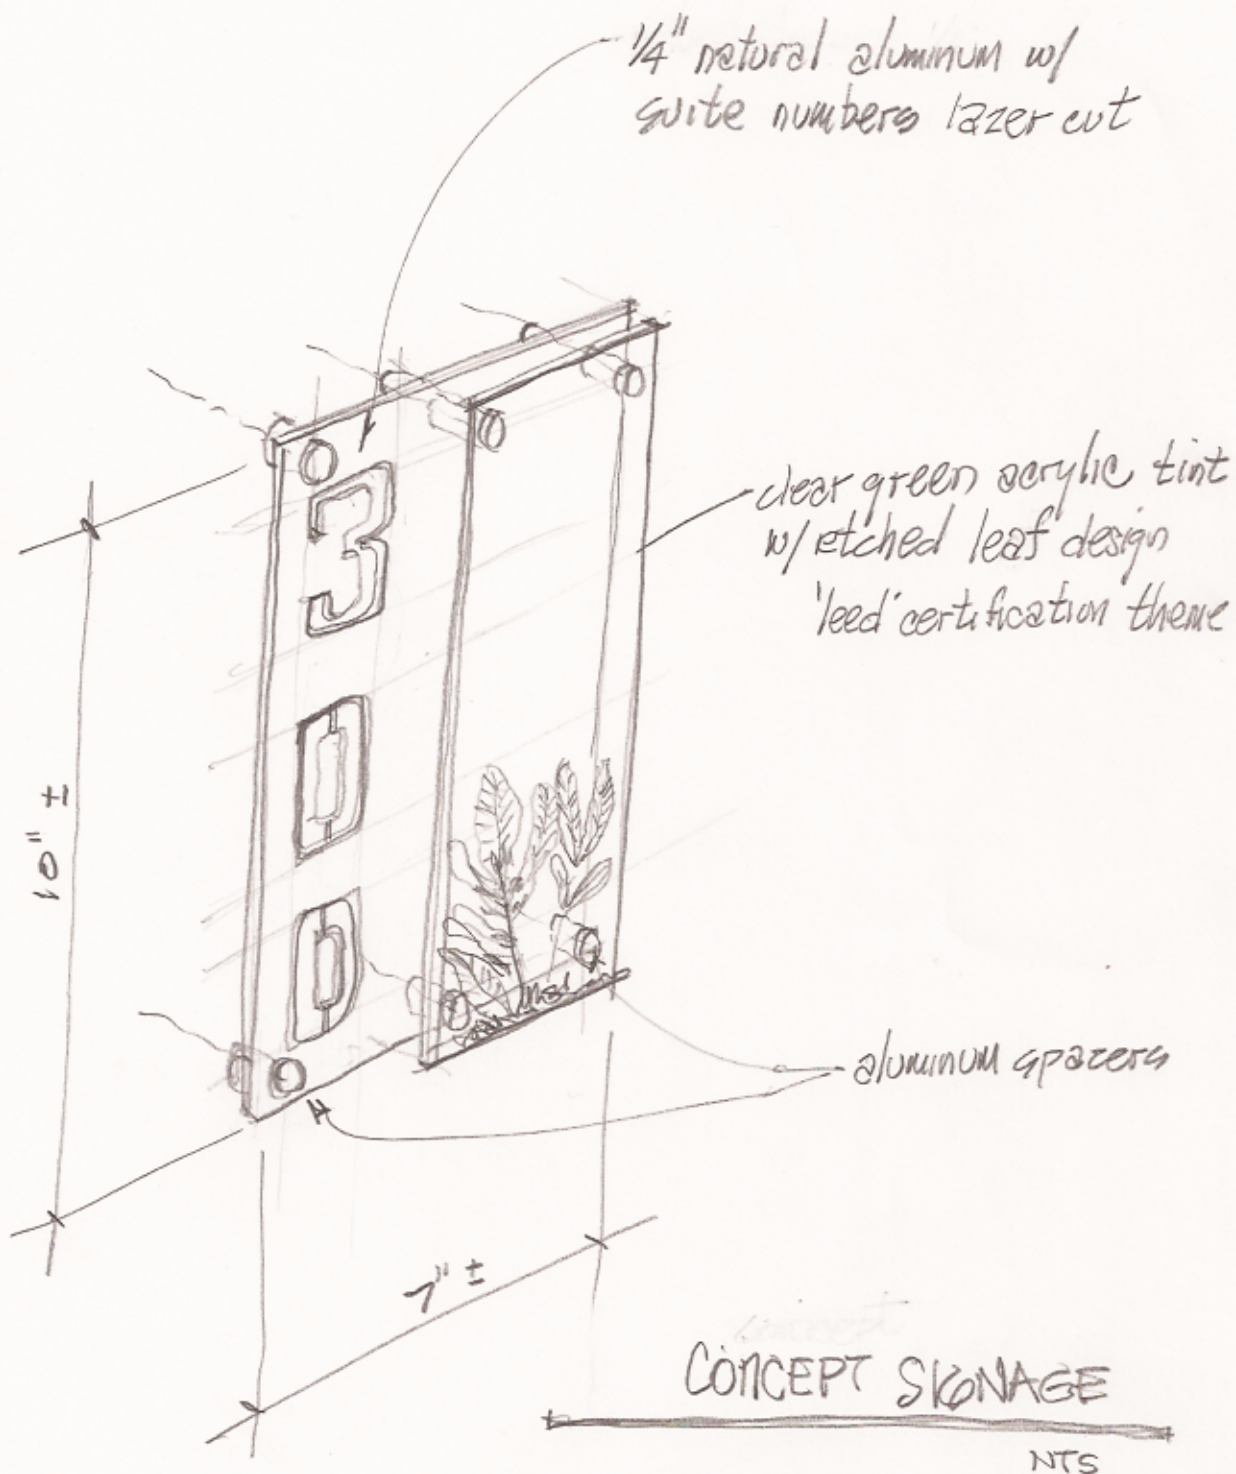 1/4" natural aluminum w/
suite numbers lazer cut
3
0
0
clear green acrylic tint
w/ etched leaf design
'leed' certification theme
10" ±
aluminum spacers
7" ±
CONCEPT SIGNAGE
NTS